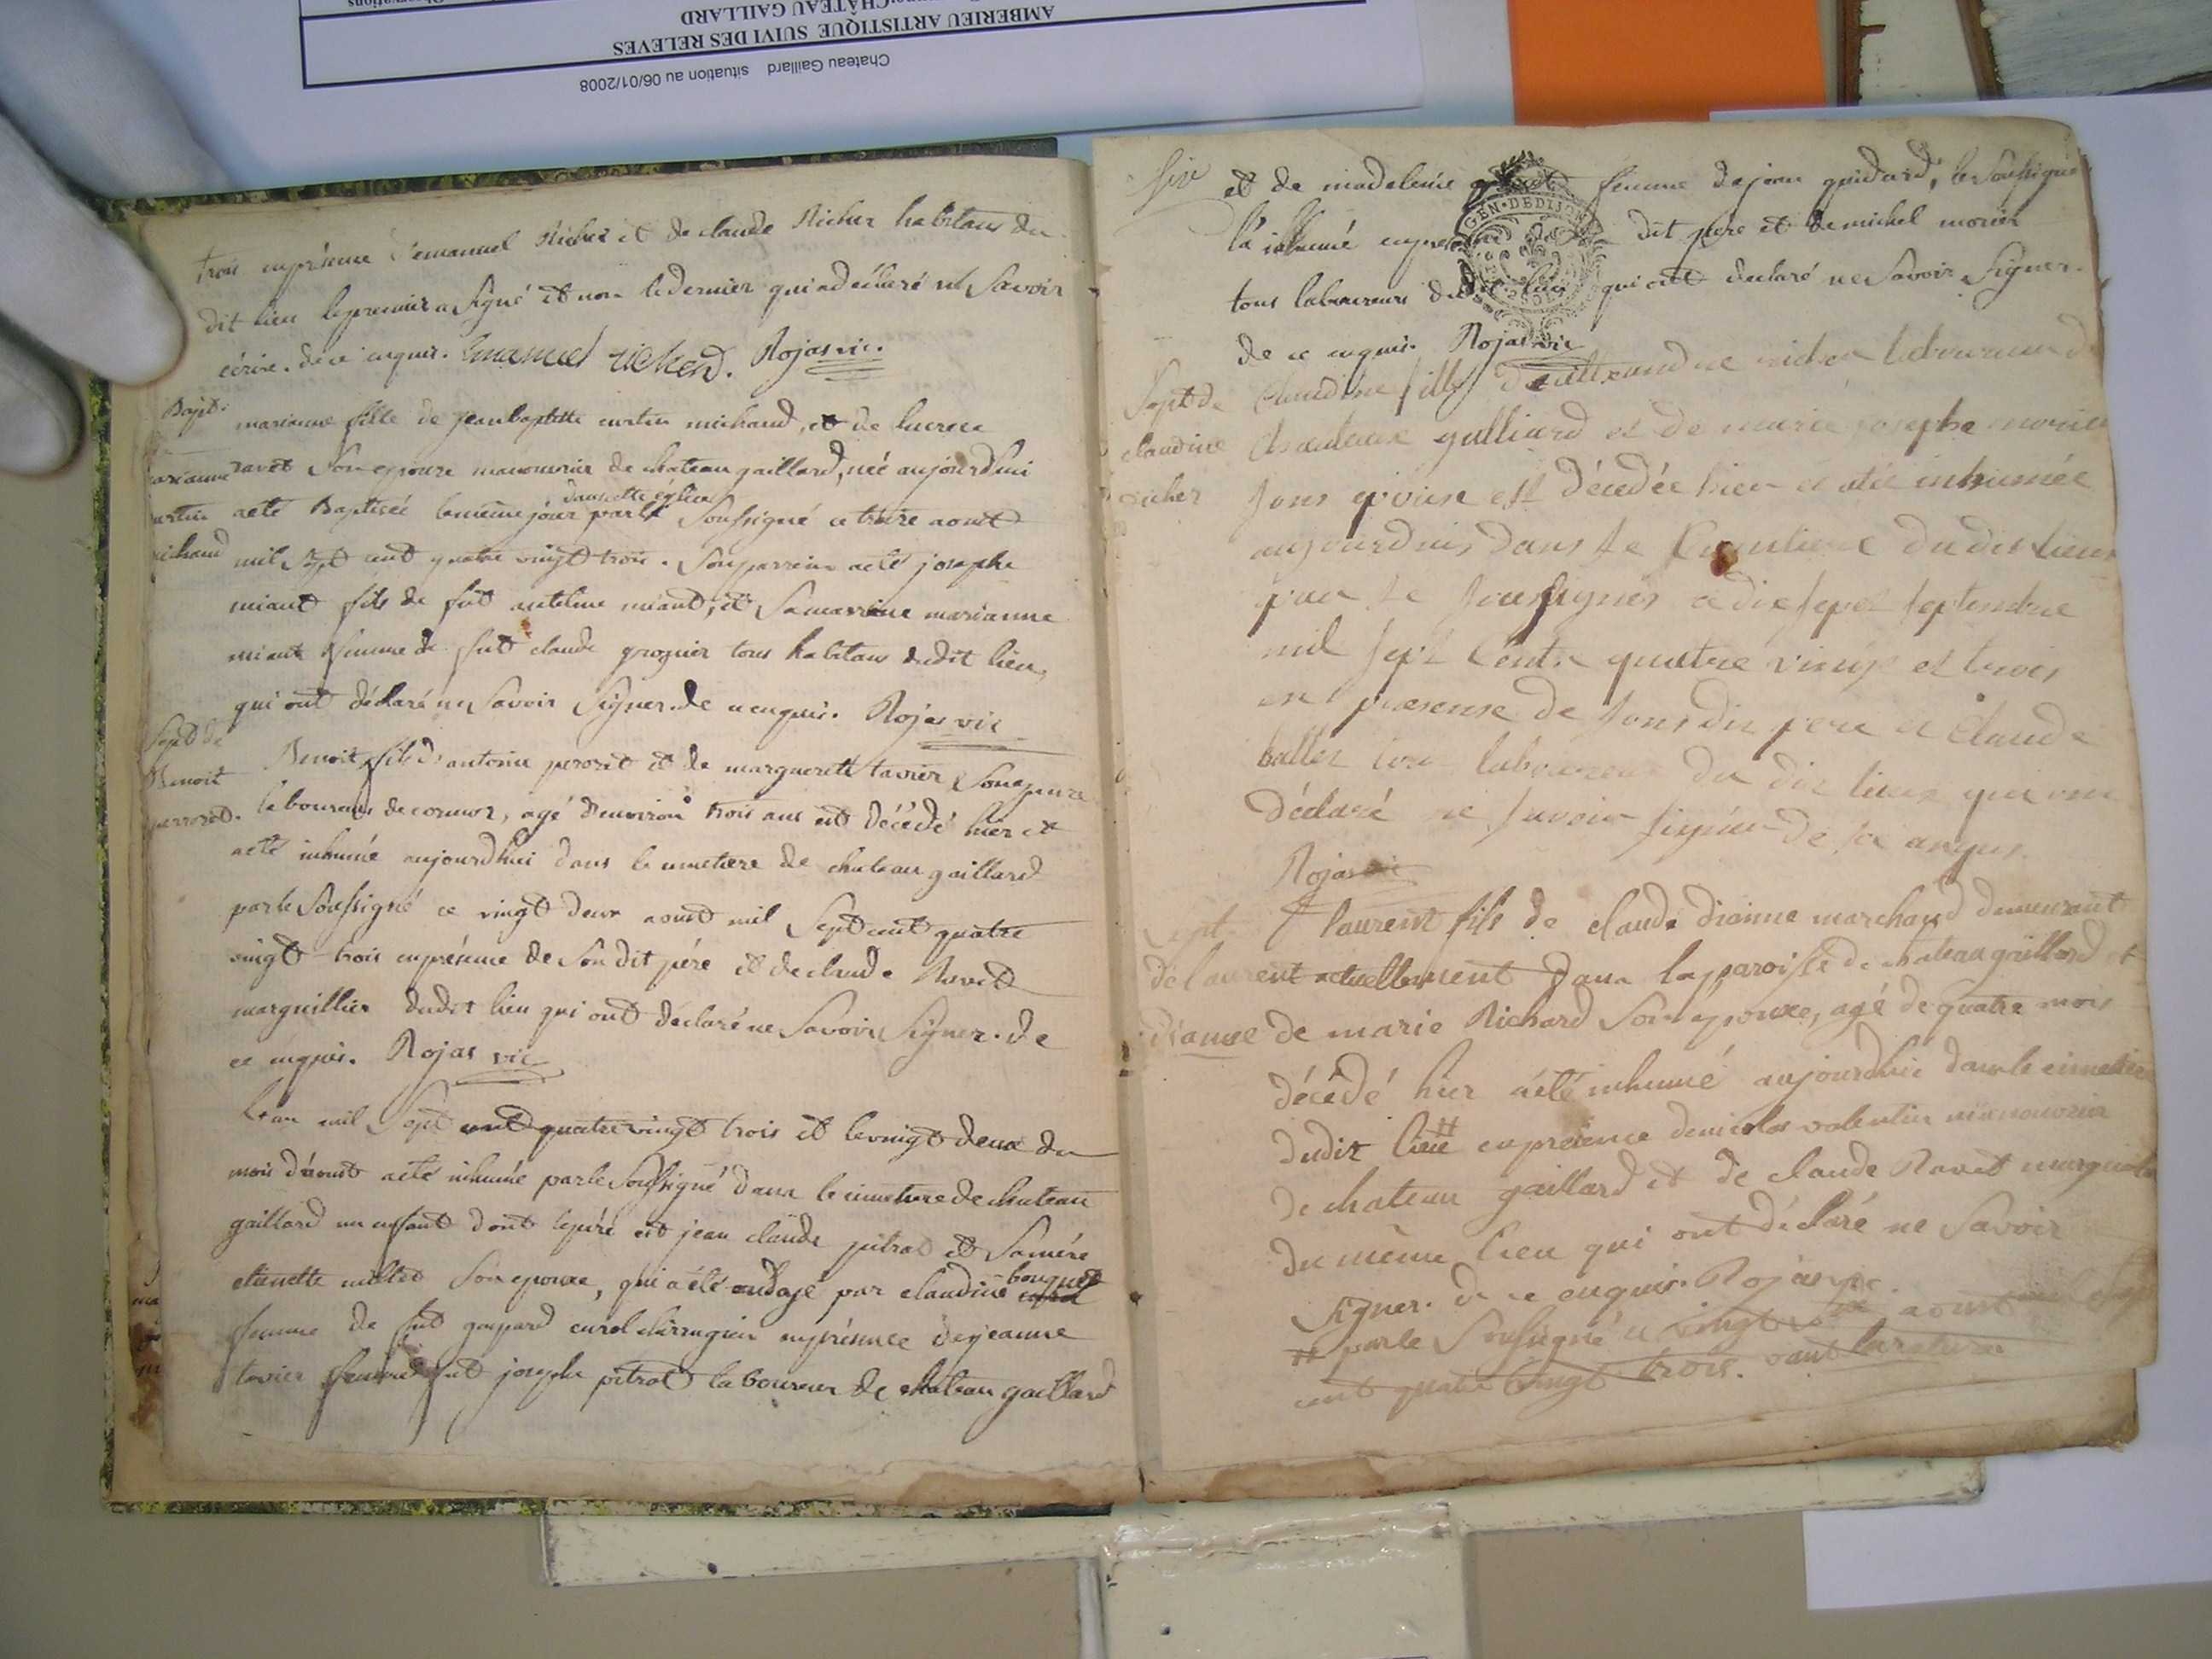 Chateau Gaillard situation au 06/01/2008
AMBERIEU ARTISTIQUE SUIVI DES RELEVES
CHÂTEAU GAILLARD
trois en présence d'emanuel Richer et de claude Richer habitans du
dit lieu le premier a signé et non le dernier qui a déclaré ne Savoir
écrire. de ce enquis. Emanuel richerd. Rojas vic.
Bapt.
marianne fille de jean baptiste curtin michaud, et de lucrece
ravet Son epouse manouvrier de chateau gaillard, née aujourdhui
a eté Baptisée le même jour dans cette église par le Soussigné ce treize aoust
michaud
mil Sept cent quatre vingt trois. Son parrain a eté josephe
miant fils de fut antelme miant, et Sa marraine marianne
miant femme de fut claude grognier tous habitans dudit lieu,
qui ont déclaré ne Savoir Signer. de ce enquis. Rojas vic
Sept de
Benoit
perrozet.
Benoit fils d'antoine perozet et de marguerite tavier Son epouse
laboureurs de cormoz, agé d'environ trois ans est décédé hier et
a eté inhumé aujourdhui dans le cimetiere de chateau gaillard
par le Soussigné ce vingt deux aoust mil Sept cent quatre
vingt trois en présence de Son dit père et de claude Ravet
marguillier dudit lieu qui ont déclaré ne Savoir Signer. de
ce enquis. Rojas vic
L'an mil Sept cent quatre vingt trois et le vingt deux du
mois d'aoust a eté inhumé par le Soussigné dans le cimetiere de chateau
gaillard un enfant dont le père est jean claude pitrat et Sa mère
etienette millet Son epouse, qui a été ondoyé par claudine bouquet
femme de fut gaspard curel chirurgien en présence de jeanne
tavier femme de fut joseph pitrat laboureur de chateau gaillard
six
et de madeleine femme de jean guidard, le Soussigné
l'a inhumé en présence dit père et de michel morier
tous laboureurs dudit lieu qui ont declaré ne Savoir Signer.
de ce enquis. Rojas vic
GEN·DE DIJON
Sept de
claudine
richer
Claudine fille richer laboureur de
Chauteaux galliard et de marie josephe morier
sons epouse est décedée hier et a été inhumée
aujourduis dans le Cimetiere du dit lieux
par le soussignés ce dix sept septembre
mil sept Cents quatre vingt et trois
en presense de sons dit pere et Claude
ballet tous laboureurs du dit lieux qui ont
déclaré ne savoir signer de ce anquis
Rojas vic
Sept.
de laurent
dianne
laurent fils de claude dianne marchand demeurant
actuellement dans la paroisse de chateau gaillard et
de marie Richard Son épouse, agé de quatre mois
décédé hier a eté inhumé aujourdhui dans le cimetiere
dudit lieu ++ en présence de nicolas valentin manouvrier
de chateau gaillard et de claude Ravet marguillier
du même lieu qui ont déclaré ne Savoir
Signer. de ce enquis. Rojas vic.
++ par le Soussigné ce vingt aoust mil sept
cent quatre vingt trois.